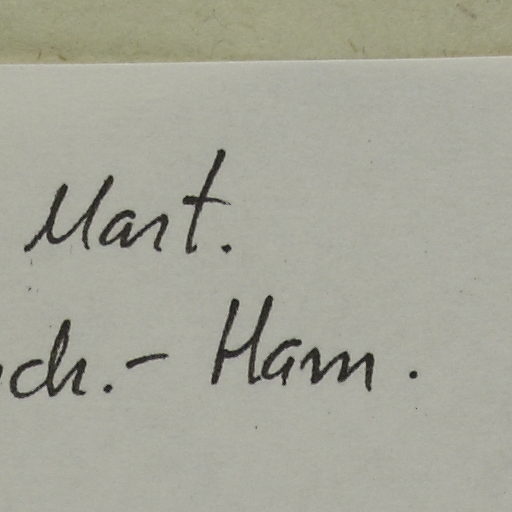 Mart.
ch.- Ham.